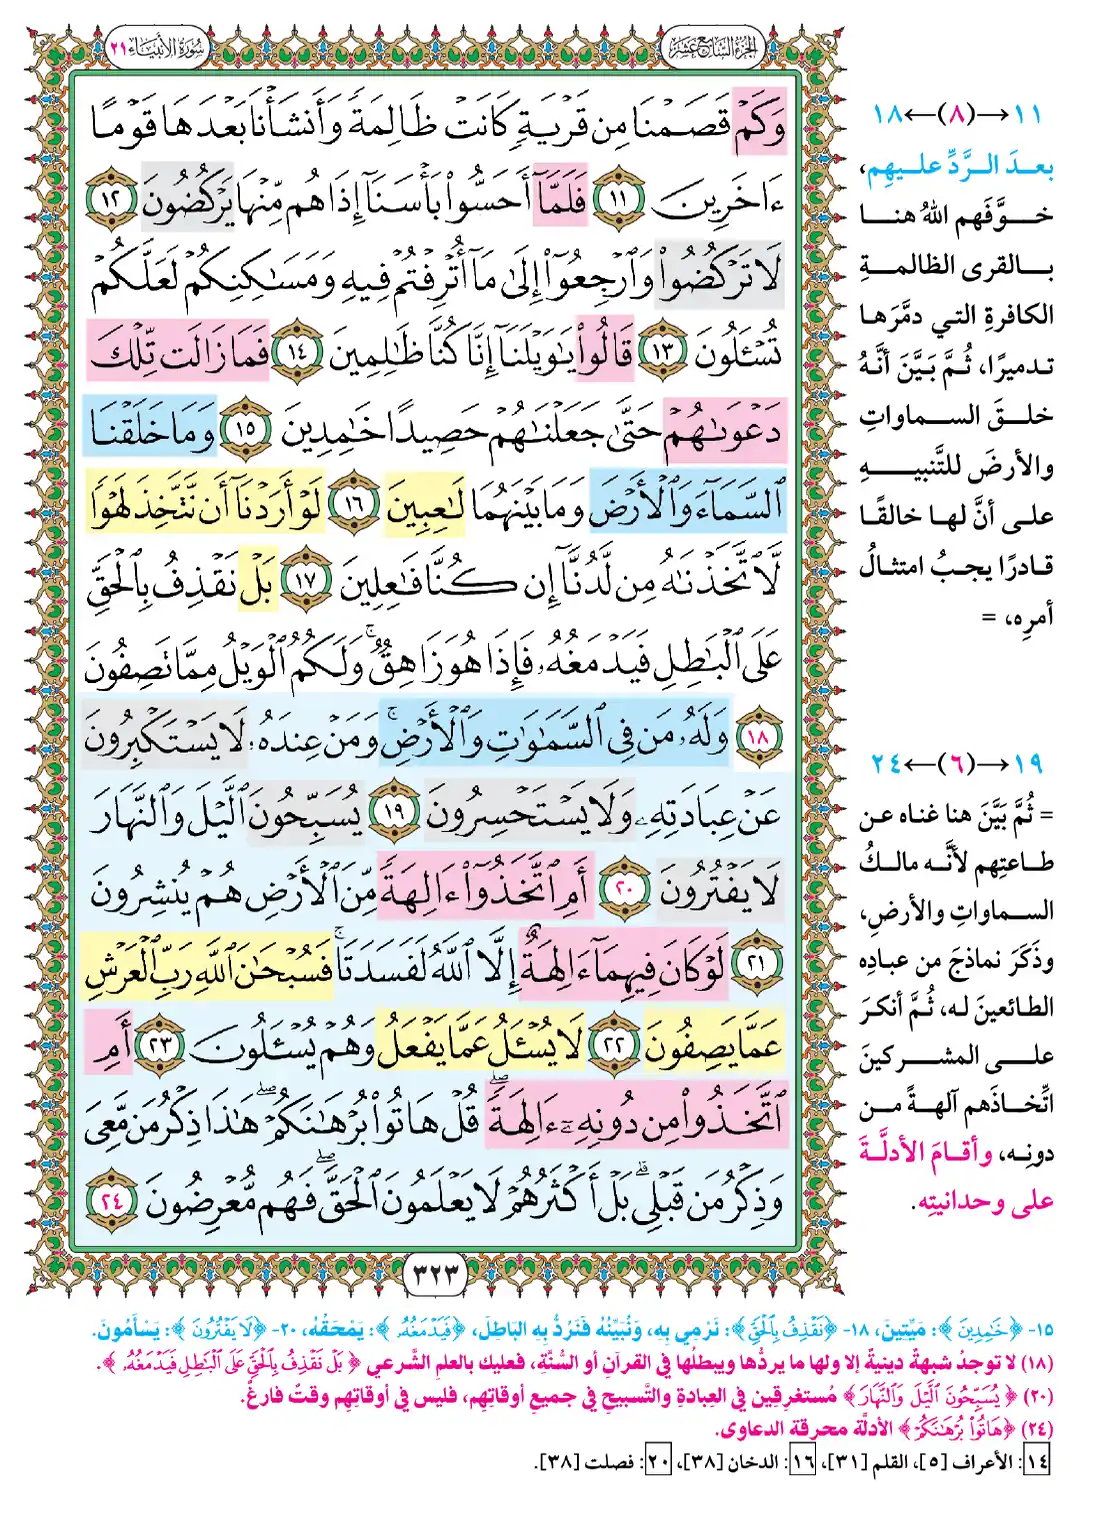 الجزء السابع عشر
سورة الأنبياء ٢١
وَكَمْ قَصَمْنَا مِن قَرْيَةٍ كَانَتْ ظَالِمَةً وَأَنشَأْنَا بَعْدَهَا قَوْمًا
ءَاخَرِينَ ١١ فَلَمَّآ أَحَسُّوا۟ بَأْسَنَآ إِذَا هُم مِّنْهَا يَرْكُضُونَ ١٢
لَا تَرْكُضُوا۟ وَٱرْجِعُوٓا۟ إِلَىٰ مَآ أُتْرِفْتُمْ فِيهِ وَمَسَٰكِنِكُمْ لَعَلَّكُمْ
تُسْـَٔلُونَ ١٣ قَالُوا۟ يَٰوَيْلَنَآ إِنَّا كُنَّا ظَٰلِمِينَ ١٤ فَمَا زَالَت تِّلْكَ
دَعْوَىٰهُمْ حَتَّىٰ جَعَلْنَٰهُمْ حَصِيدًا خَٰمِدِينَ ١٥ وَمَا خَلَقْنَا
ٱلسَّمَآءَ وَٱلْأَرْضَ وَمَا بَيْنَهُمَا لَٰعِبِينَ ١٦ لَوْ أَرَدْنَآ أَن نَّتَّخِذَ لَهْوًا
لَّٱتَّخَذْنَٰهُ مِن لَّدُنَّآ إِن كُنَّا فَٰعِلِينَ ١٧ بَلْ نَقْذِفُ بِٱلْحَقِّ
عَلَى ٱلْبَٰطِلِ فَيَدْمَغُهُۥ فَإِذَا هُوَ زَاهِقٌ ۚ وَلَكُمُ ٱلْوَيْلُ مِمَّا تَصِفُونَ
١٨ وَلَهُۥ مَن فِى ٱلسَّمَٰوَٰتِ وَٱلْأَرْضِ ۚ وَمَنْ عِندَهُۥ لَا يَسْتَكْبِرُونَ
عَنْ عِبَادَتِهِۦ وَلَا يَسْتَحْسِرُونَ ١٩ يُسَبِّحُونَ ٱلَّيْلَ وَٱلنَّهَارَ
لَا يَفْتُرُونَ ٢٠ أَمِ ٱتَّخَذُوٓا۟ ءَالِهَةً مِّنَ ٱلْأَرْضِ هُمْ يُنشِرُونَ
٢١ لَوْ كَانَ فِيهِمَآ ءَالِهَةٌ إِلَّا ٱللَّهُ لَفَسَدَتَا ۚ فَسُبْحَٰنَ ٱللَّهِ رَبِّ ٱلْعَرْشِ
عَمَّا يَصِفُونَ ٢٢ لَا يُسْـَٔلُ عَمَّا يَفْعَلُ وَهُمْ يُسْـَٔلُونَ ٢٣ أَمِ
ٱتَّخَذُوا۟ مِن دُونِهِۦٓ ءَالِهَةً ۖ قُلْ هَاتُوا۟ بُرْهَٰنَكُمْ ۖ هَٰذَا ذِكْرُ مَن مَّعِىَ
وَذِكْرُ مَن قَبْلِى ۗ بَلْ أَكْثَرُهُمْ لَا يَعْلَمُونَ ٱلْحَقَّ ۖ فَهُم مُّعْرِضُونَ ٢٤
٣٢٣
١١→(٨)←١٨
بعدَ الرَّدِّ عليهِم،
خوَّفَهم اللهُ هنا
بالقرى الظالمةِ
الكافرةِ التي دمَّرَها
تدميرًا، ثُمَّ بَيَّنَ أنَّهُ
خلقَ السماواتِ
والأرضَ للتَّنبيهِ
على أنَّ لها خالقًا
قادرًا يجبُ امتثالُ
أمرِه، =
١٩→(٦)←٢٤
= ثُمَّ بَيَّنَ هنا غناه عن
طاعتِهم لأنَّه مالكُ
السماواتِ والأرضِ،
وذَكَرَ نماذجَ من عبادِه
الطائعينَ له، ثُمَّ أنكرَ
على المشركينَ
اتِّخاذَهم آلهةً من
دونِه، وأقامَ الأدلَّةَ
على وحدانيتِه.
١٥- ﴿خَٰمِدِينَ﴾: مَيِّتِينَ، ١٨- ﴿نَقْذِفُ بِٱلْحَقِّ﴾: نَرْمِي بِه، وَنُبَيِّنُهُ فَنَرُدُّ بِه البَاطِلَ، ﴿فَيَدْمَغُهُۥ﴾: يَمْحَقُهُ، ٢٠- ﴿لَا يَفْتُرُونَ﴾: يَسْأَمُونَ.
(١٨) لا توجدُ شبهةٌ دينيةٌ إلا ولها ما يردُّها ويبطلُها في القرآنِ أو السُّنَّةِ، فعليك بالعلمِ الشَّرعي ﴿بَلْ نَقْذِفُ بِٱلْحَقِّ عَلَى ٱلْبَٰطِلِ فَيَدْمَغُهُۥ﴾.
(٢٠) ﴿يُسَبِّحُونَ ٱلَّيْلَ وَٱلنَّهَارَ﴾ مُستغرِقين في العبادةِ والتَّسبيحِ في جميعِ أوقاتِهم، فليس في أوقاتِهم وقتٌ فارغٌ.
(٢٤) ﴿هَاتُوا۟ بُرْهَٰنَكُمْ﴾ الأدلَّة محرقة الدعاوى.
١٤: الأعراف [٥]، القلم [٣١]، ١٦: الدخان [٣٨]، ٢٠: فصلت [٣٨].